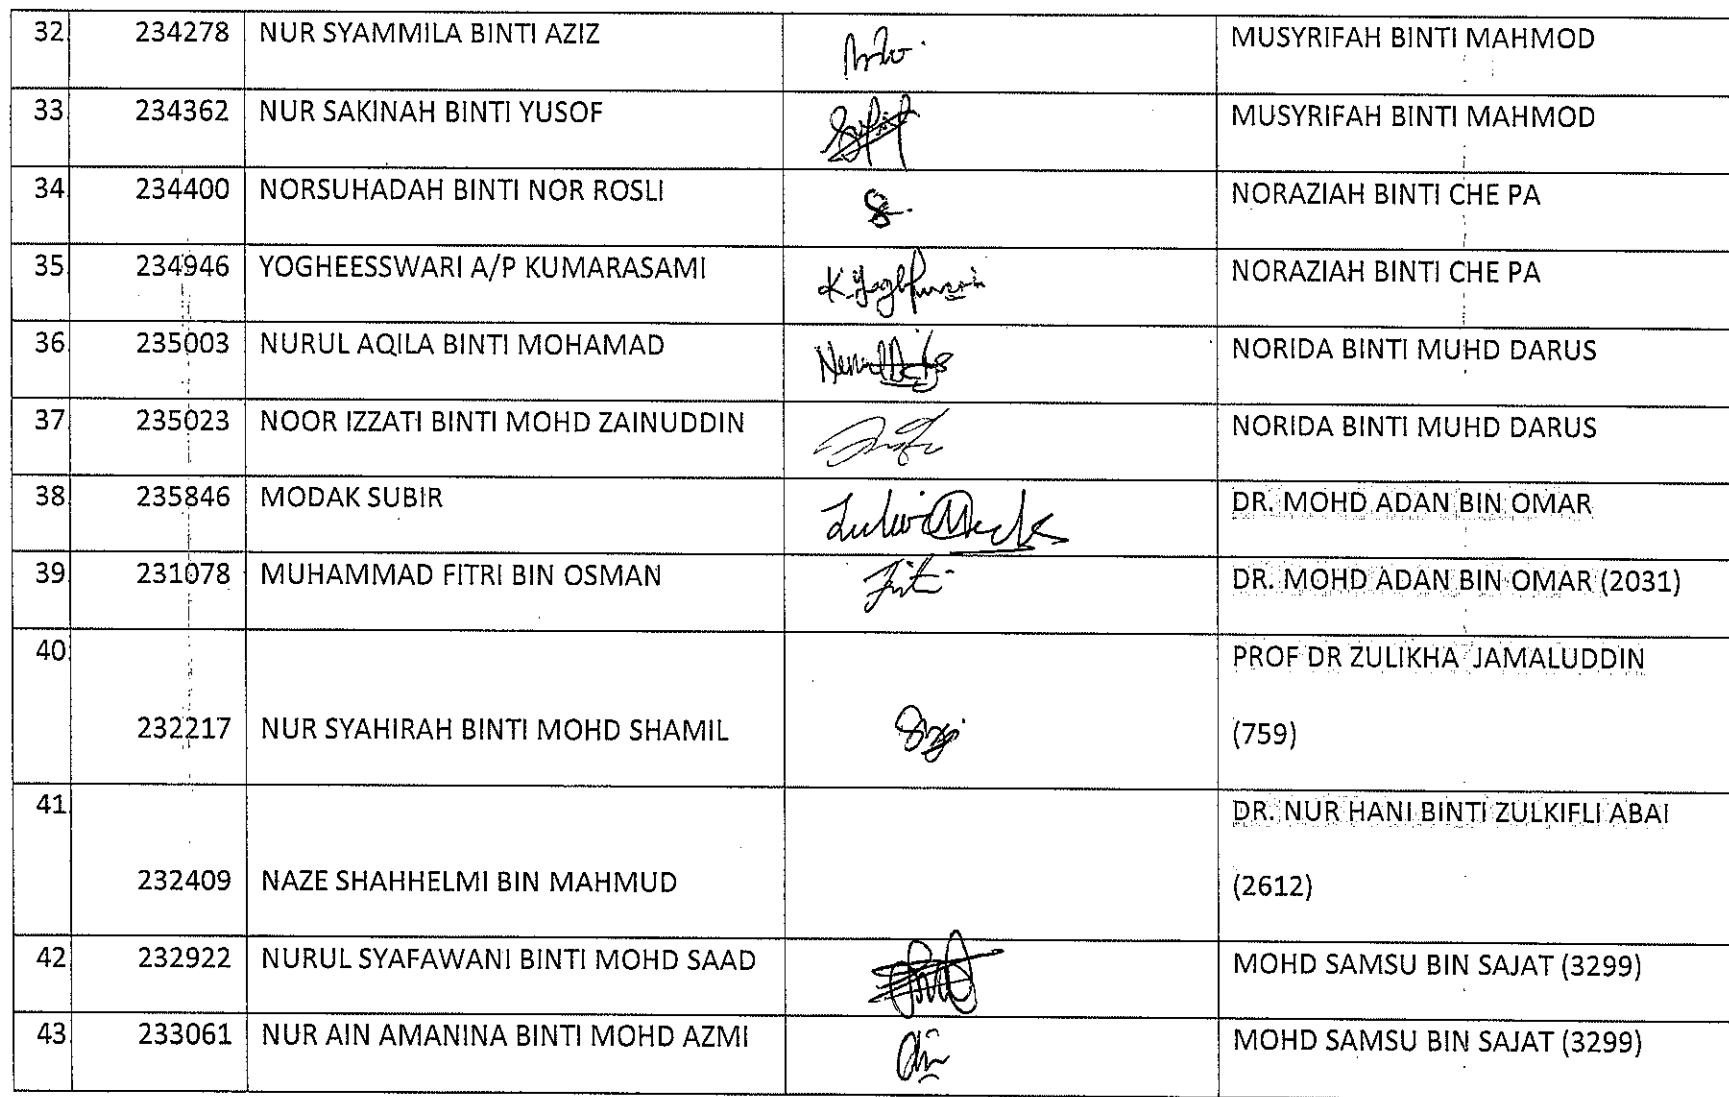 32 234278 NUR SYAMMILA BINTI AZIZ MUSYRIFAH BINTI MAHMOD
33 234362 NUR SAKINAH BINTI YUSOF MUSYRIFAH BINTI MAHMOD
34 234400 NORSUHADAH BINTI NOR ROSLI NORAZIAH BINTI CHE PA
35 234946 YOGHEESSWARI A/P KUMARASAMI NORAZIAH BINTI CHE PA
36 235003 NURUL AQILA BINTI MOHAMAD NORIDA BINTI MUHD DARUS
37 235023 NOOR IZZATI BINTI MOHD ZAINUDDIN NORIDA BINTI MUHD DARUS
38 235846 MODAK SUBIR DR. MOHD ADAN BIN OMAR
39 231078 MUHAMMAD FITRI BIN OSMAN Fitri DR. MOHD ADAN BIN OMAR (2031)
40 PROF DR ZULIKHA JAMALUDDIN
232217 NUR SYAHIRAH BINTI MOHD SHAMIL (759)
41 DR. NUR HANI BINTI ZULKIFLI ABAI
232409 NAZE SHAHHELMI BIN MAHMUD (2612)
42 232922 NURUL SYAFAWANI BINTI MOHD SAAD MOHD SAMSU BIN SAJAT (3299)
43 233061 NUR AIN AMANINA BINTI MOHD AZMI MOHD SAMSU BIN SAJAT (3299)